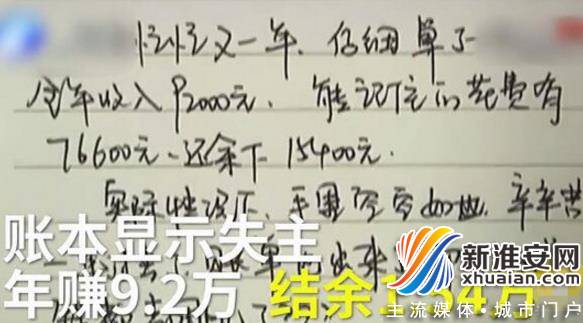 忙忙又一年、仔细算了
全年收入92000元、能记住的花费有
76600元、还余下15400元.
实际 空空如也、辛辛苦
账本显示失主
年赚9.2万 结余
新淮安网
xhuaian.com
主流媒体·城市门户